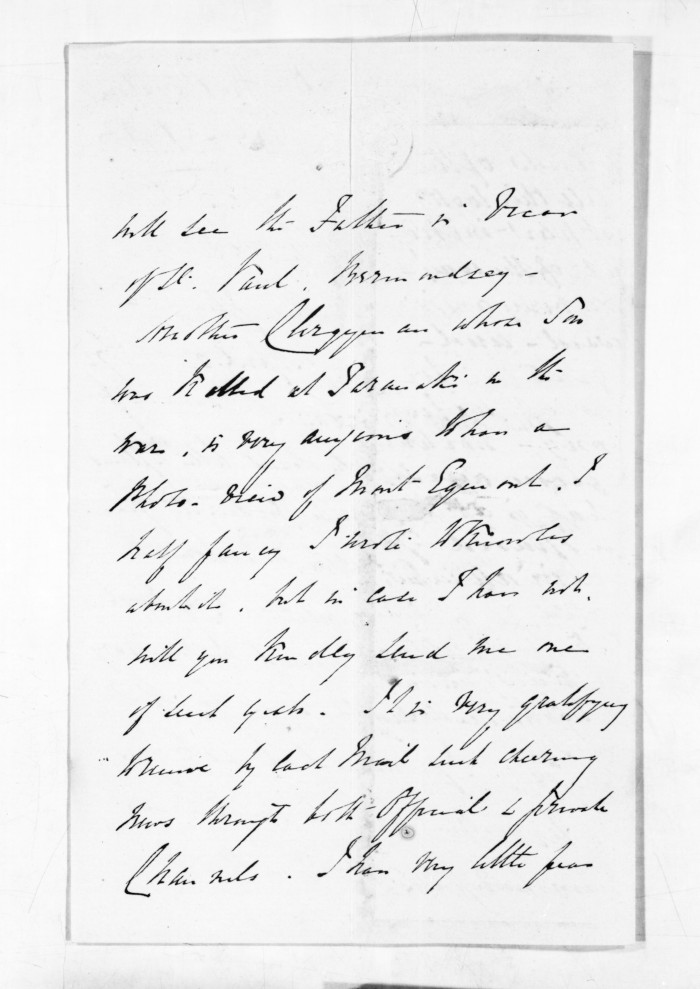 will see the Father is Vicar
of St. Paul, Bermondsey –
Another Clergyman whose Son
was Killed at Taranaki in the
war, is very anxious to have a
Photo- view of Mount Egmont. I
half fancy I wrote to Knowles
about it, but in case I have not,
will you kindly send me one
of such – It is very gratifying
to receive by last Mail such cheering
news through both Official & private
Channels. I have very little fear